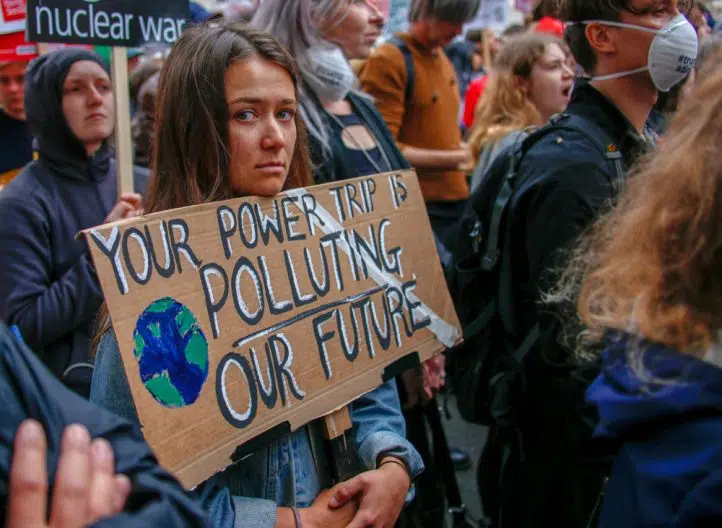 nuclear war
YOUR POWER TRIP IS
POLLUTING
OUR FUTURE